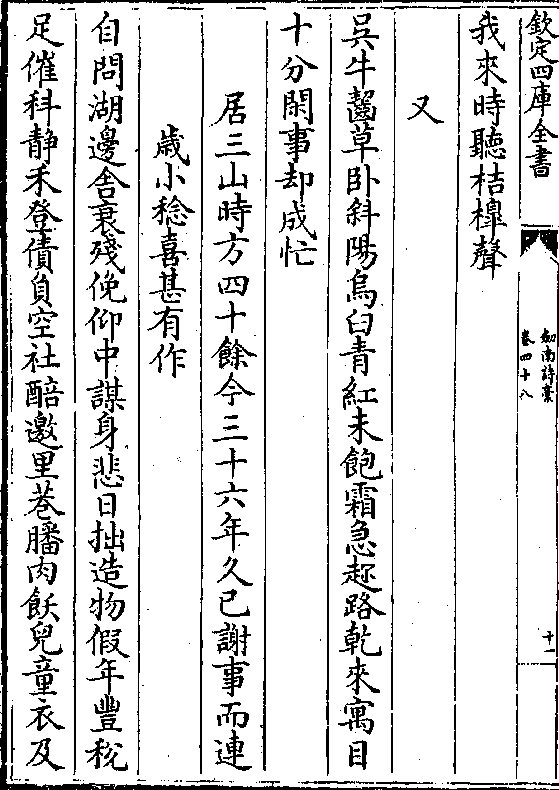 欽定四庫全書
劒南詩藁
卷四十八
十一
我來時聽桔橰聲
又
吳牛齧草卧斜陽烏臼青紅未飽霜急趂路乾來寓目
十分閑事却成忙
居三山時方四十餘今三十六年久已謝事而連
歲小稔喜甚有作
自問湖邊舎衰殘俛仰中謀身悲日拙造物假年豐稅
足催科静禾登債負空社醅邀里巷膰肉飫兒童衣及